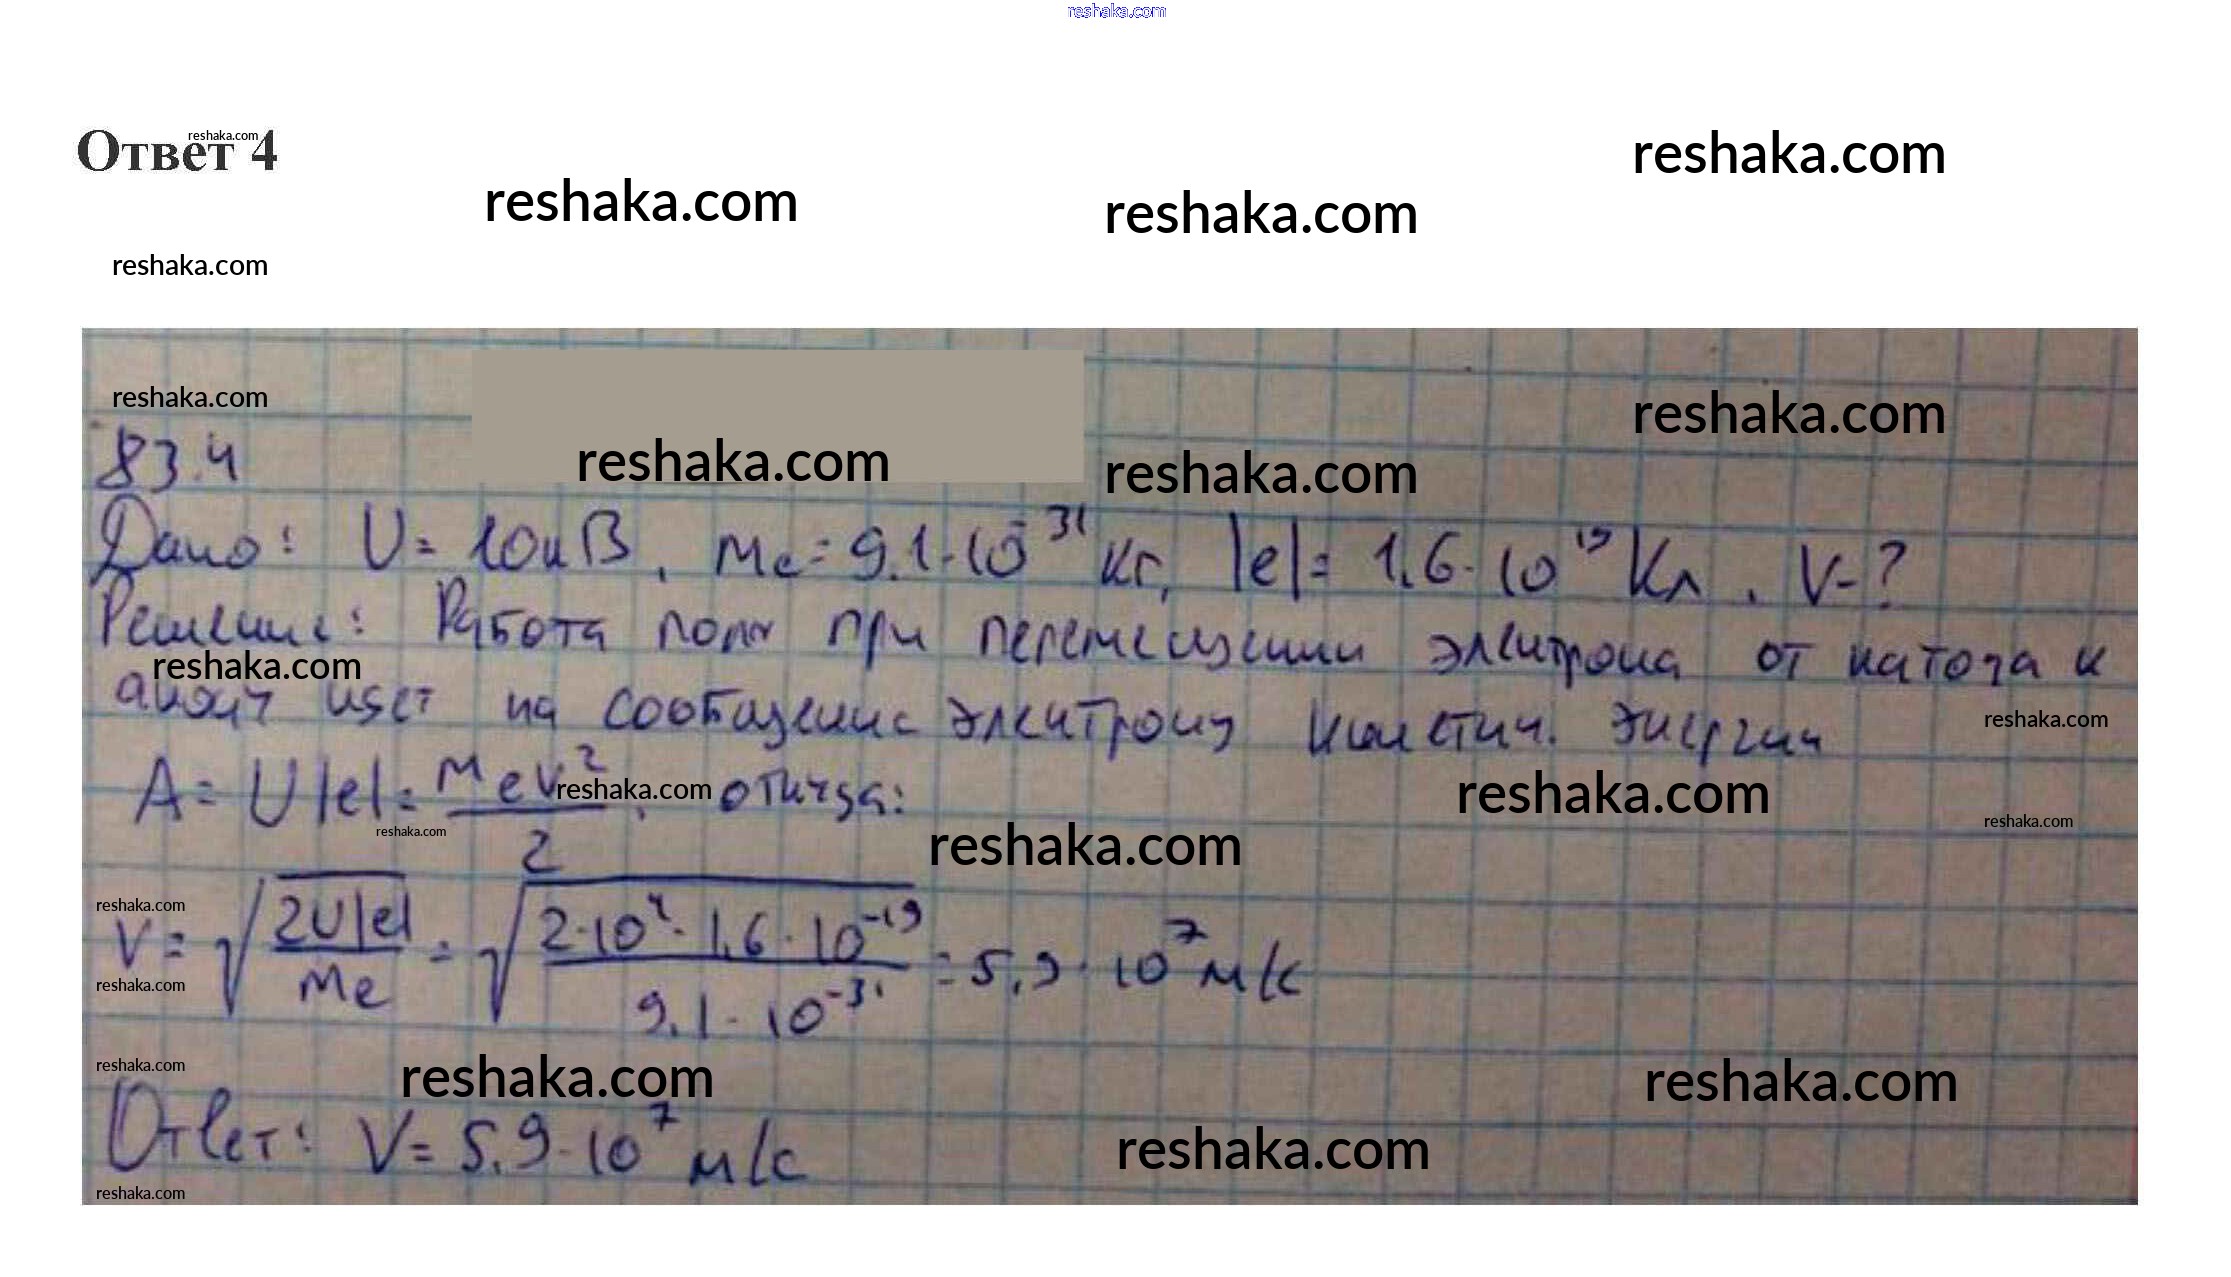 reshaka.com
Ответ 4
reshaka.com
reshaka.com
reshaka.com
reshaka.com
reshaka.com
reshaka.com
reshaka.com
83.4
reshaka.com
reshaka.com
Дано: U = 10кВ, me = 9.1·10⁻³¹ кг, |e| = 1,6·10¹⁹ Кл. V-?
Решение: Работа поля при перемещении электрона от катода к
reshaka.com
аноду идет на сообщение электрону кинетич. энергии
reshaka.com
A = U|e| = mev²/2, откуда:
reshaka.com
reshaka.com
reshaka.com
reshaka.com
reshaka.com
reshaka.com
V = √(2U|e|/me) = √(2·10⁴·1,6·10⁻¹⁹/9.1·10⁻³¹) = 5,9·10⁷ м/с
reshaka.com
reshaka.com
reshaka.com
reshaka.com
Ответ: V = 5,9·10⁷ м/с
reshaka.com
reshaka.com